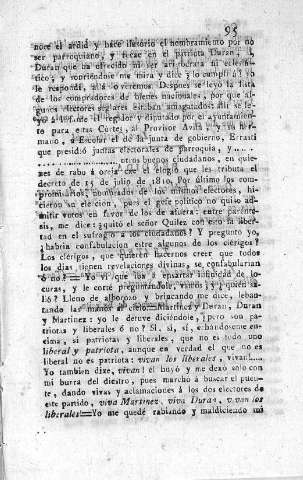 95
noce el ardid y hace ilusorio el nombramiento por no
ser parroquiano, y recae en el patriota Duran;
Duran que ha ofrecido ni ser aristócrata ni eclesiás-
tico; y sonriendose me mira y dice ¿lo cumplirá? yo
le respondí, allá o veremos. Despues se leyó la lista
de los compradores de bienes nacionales, por que al-
gunos electores seglares estaban amagados: allí se le-
yó á el regidor y diputado por el ayuntamien-
to para estas Cortes, al Provisor Avila, y su her-
mano, á Escolar el de la junta de gobierno, Errati
que presidió juntas electorales de parroquia, y.....
................ otros buenos ciudadanos, en quie-
nes de rabo á oreja cae el elogio que les tributa el
decreto de 15 de julio de 1810. Por último los com-
promisarios, nombrados de los mismos electores, hi-
cieron su eleccion, pues el gefe político no quiso ad-
mitir votos en favor de los de afuera: entre parénte-
sis, me dice: ¿quitó el señor Quilez con esto la liber-
tad en el sufragio á los ciudadanos? Y pregunto yo,
¿habria confabulacion entre algunos de los clérigos?
Los clérigos, que quieren hacernos creer que todos
los dias tienen revelaciones divinas, se confabularian
ó no? = Yo ví que iba á ensartar infinidad de lo-
curas, y le corté preguntándole, vamos ¿y quién sa-
lió? Lleno de alborozo y brincando me dice, leban-
tando las manos al cielo = Martinez y Duran, Duran
y Martinez: yo le detuve diciéndole, ¿pero son pa-
triotas y liberales ó no? = Sí, sí, sí, echándoseme en-
cima, sí patriotas y liberales, que no es todo uno
liberal y patriota, aunque en verdad el que no es
liberal no es patriota: vivan los liberales, vivan!....
Yo tambien dixe, vivan! él huyó y me dexó solo con
mi burra del diestro, pues marchó á buscar el puen-
te, dando vivas y aclamaciones á los dos electores de
este partido, viva Martinez, viva Duran, vivan los
liberales = Yo me quedé rabiando y maldiciendo mi